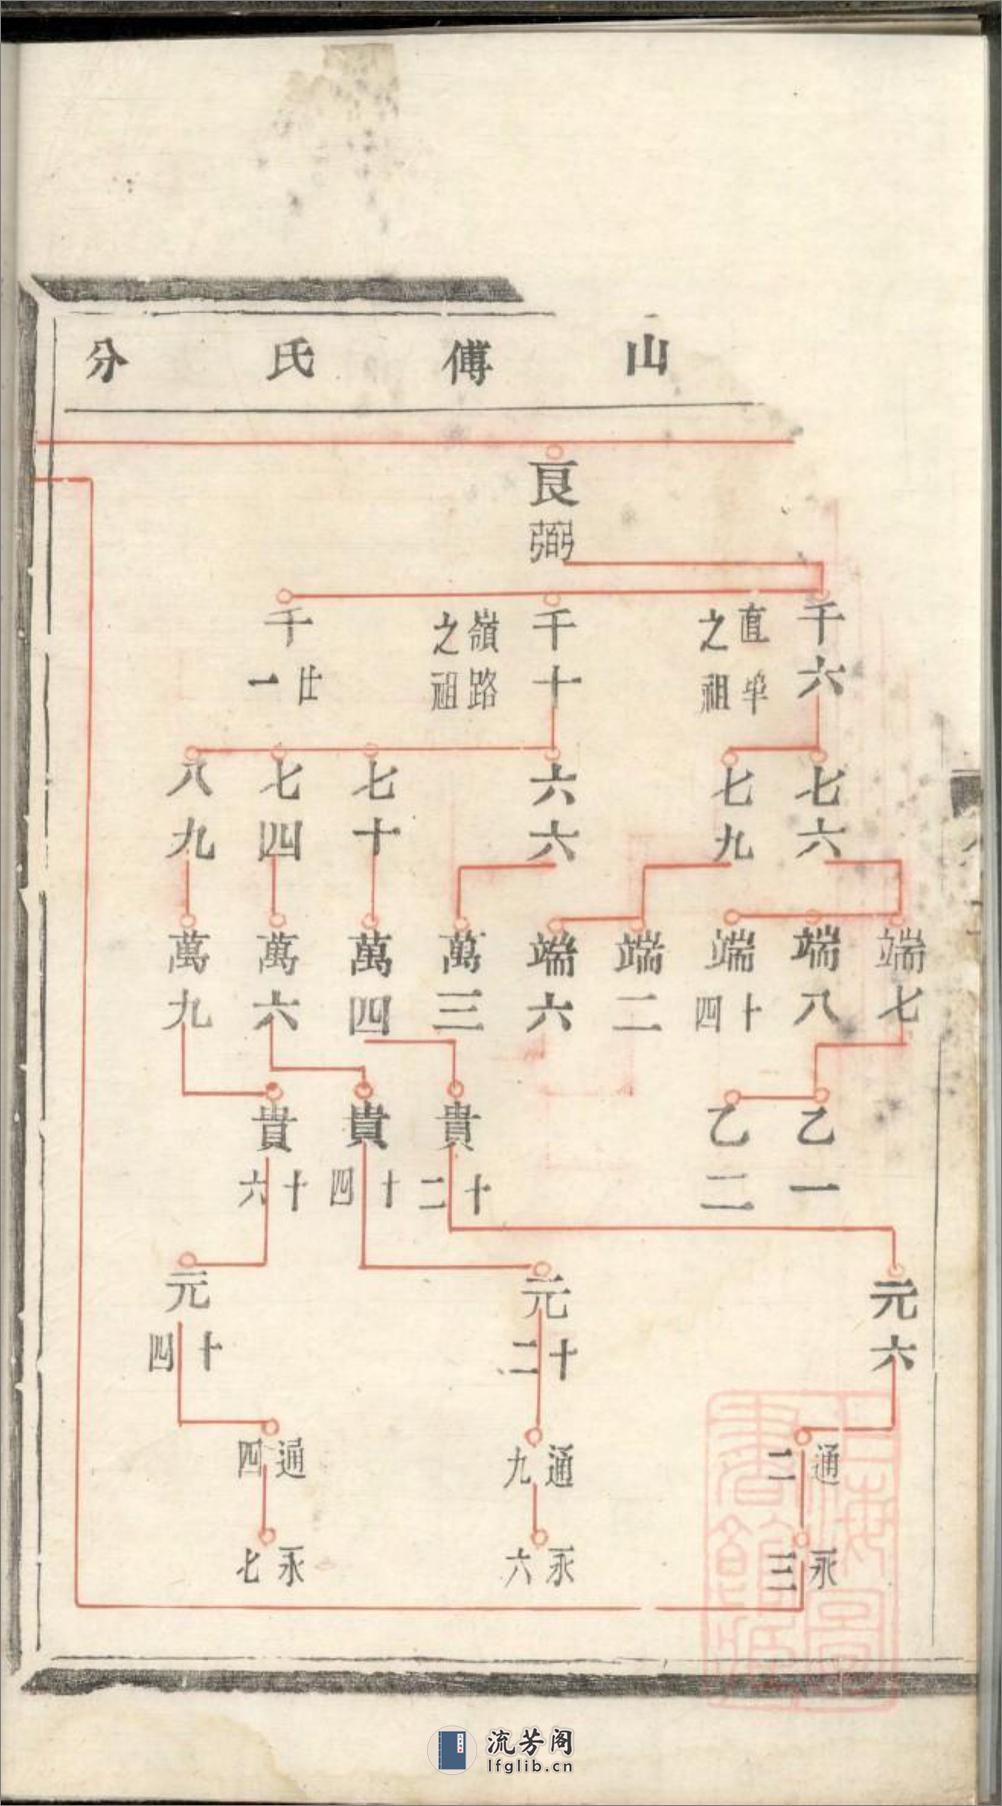 山傅氏分
良弼
千六 直阜之祖
千十 嶺路之祖
千廿一
七六
七九
六六
七十
七四
八九
端七
端八
端十四
端二
端六
萬三
萬四
萬六
萬九
乙一
乙二
貴十二
貴十四
貴十六
元六
元十二
元十四
通二
通九
通四
永三
永六
永七
上海圖書館藏
流芳阁
lfglib.cn